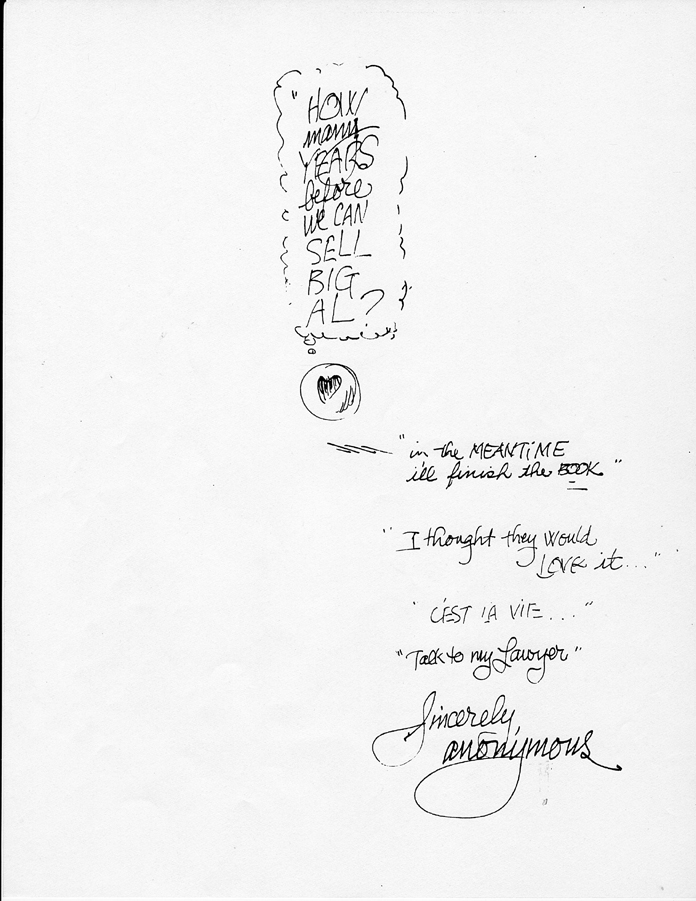 "HOW
many
YEARS
before
WE CAN
SELL
BIG
AL?
"in the MEANTiME
i'll finish the BOOK"
"I thought they would
LOVE it..."
"C'EST LA ViE..."
"Talk to my Lawyer"
Sincerely,
anonymous